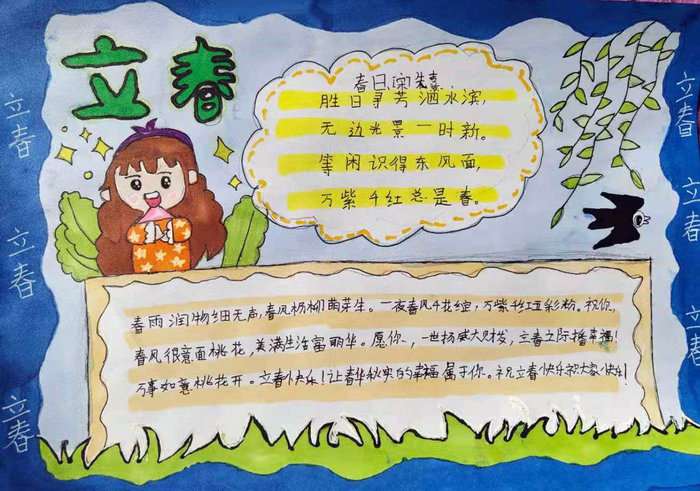 立春
春日,宋朱熹
胜日寻芳泗水滨,
无边光景一时新。
等闲识得东风面,
万紫千红总是春。
春雨润物细无声,春风杨柳萌芽生。一夜春风千花绽,万紫千红五彩粉。祝你,
春风很意面桃花,美满生活富丽华。愿你,一世扬威大财发,立春之际播幸福!
万事如意桃花开。立春快乐!让春华秋实的幸福属于你。祝立春快乐祝大家快乐!
立春
立春
立春
立春
立春
立春